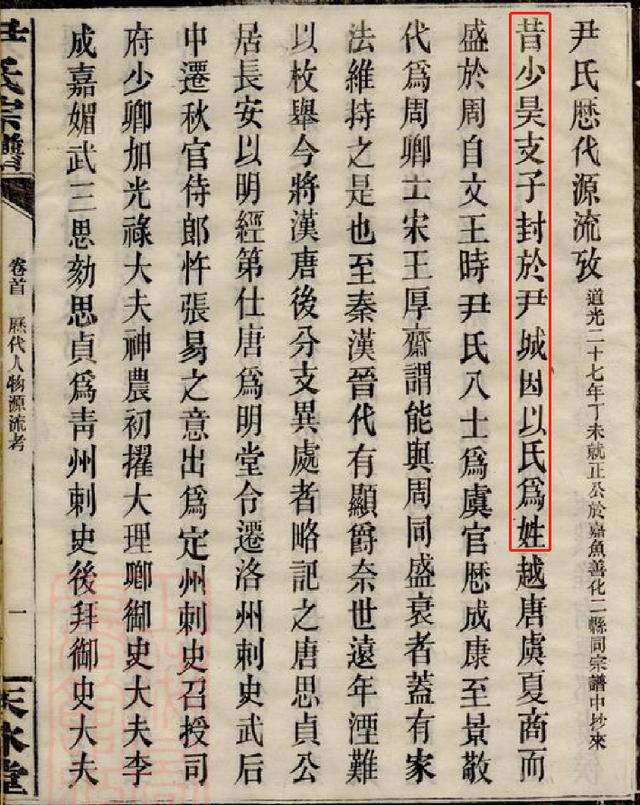 尹氏歷代源流攷 道光二十七年丁未就正公於嘉魚善化二縣同宗譜中抄來
昔少昊支子封於尹城因以氏爲姓越唐虞夏商而
盛於周自文王時尹氏八士爲虞官歷成康至景敬
代爲周卿士宋王厚齋謂能與周同盛衰者蓋有家
法維持之是也至秦漢晉代有顯爵奈世遠年湮難
以枚舉今將漢唐後分支異處者略記之唐思貞公
居長安以明經第仕唐爲明堂令遷洛州刺史武后
中遷秋官侍郎忤張易之意出爲定州刺史召授司
府少卿加光祿大夫神農初擢大理卿御史大夫李
成嘉媚武三思劾思貞爲靑州刺史後拜御史大夫
尹氏宗譜
卷首 歷代人物源流考
一
天水堂